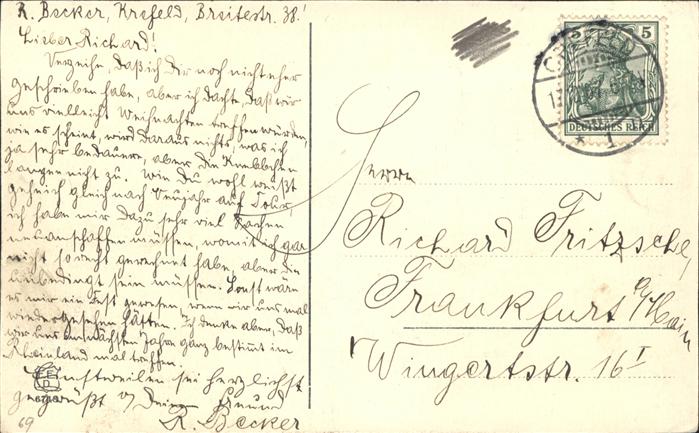 R. Becker, Krefeld, Breitestr. 38.
Lieber Richard!
Verzeihe, daß ich Dir noch nicht eher
geschrieben habe, aber ich dachte, daß wir
uns vielleicht Weihnachten treffen würden,
wie es scheint, wird daraus nichts, was ich
ja sehr bedauere, aber die
langen nicht zu. Wie Du wohl weißt
geh ich gleich nach Neujahr auf Tour,
ich habe mir dazu sehr viel Sachen
neu anschaffen müssen, womit ich gar
nicht so recht gerechnet habe, aber die
unbedingt sein müssen. Sonst wäre
es mir ein Fest gewesen, wenn wir uns mal
wiedergesehen hätten. Ich denke aber, daß
wir uns im nächsten Jahre ganz bestimmt im
Rheinland mal treffen.
Einstweilen sei herzlichst
gegrüßt v/ Deinem Freund
R. Becker
69
CREFELD
* 1
5 5
DEUTSCHES REICH
Herrn
Richard Fritzsche,
Frankfurt a/Main
Wingertstr. 16 I